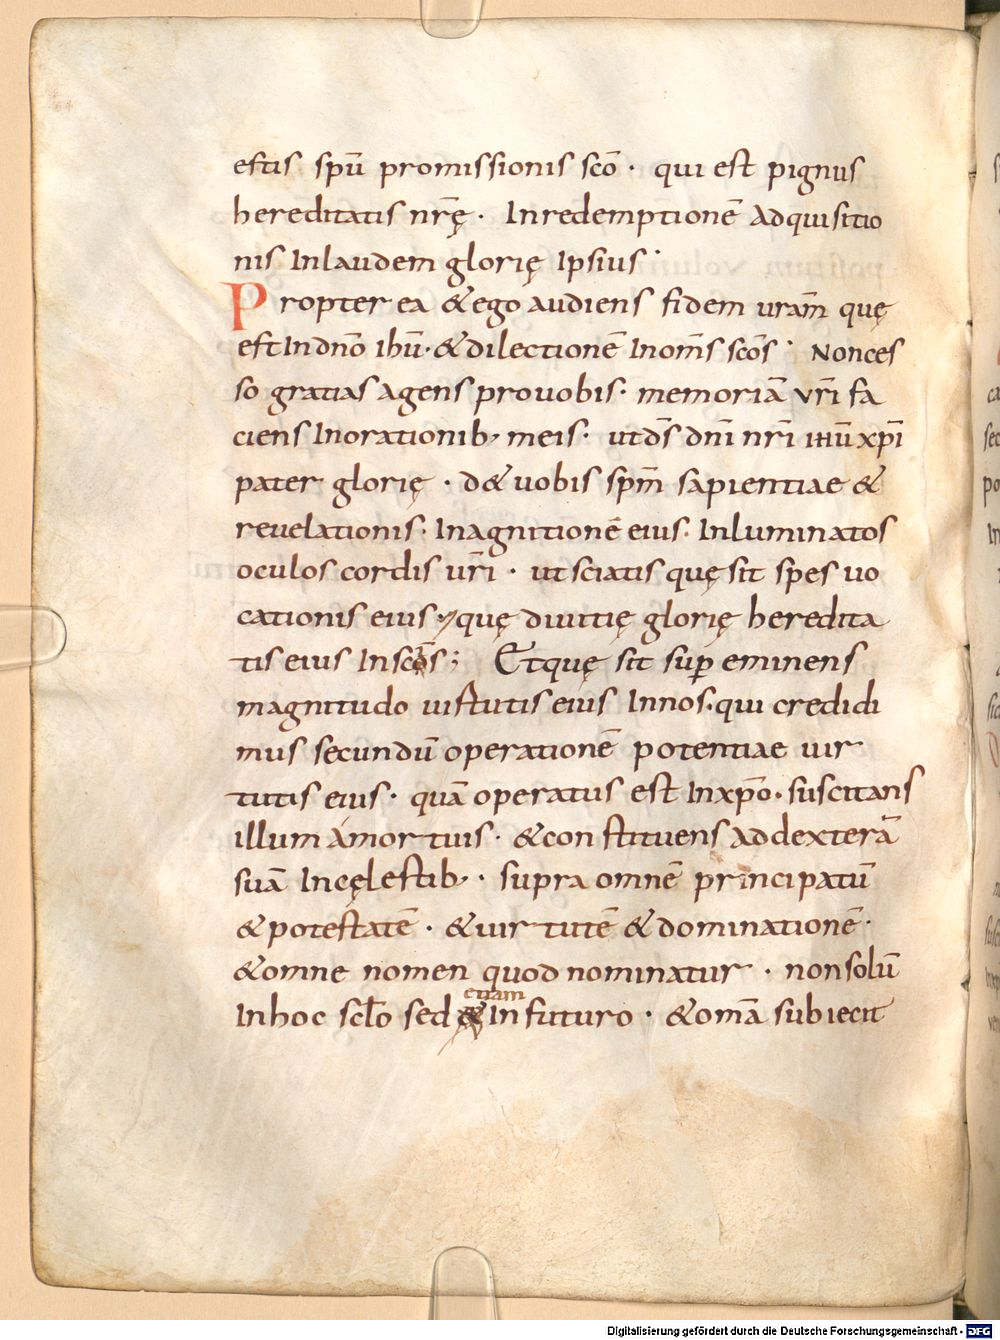 estis spū promissionis scō · qui est pignus
hereditatis nrę̄ · Inredemptionē adquisitio
nis Inlaudem glorię Ipsius ·
Propter ea & ego audiens fidem urām quę
est Indnō ihū · & dilectionē Inom̄s scōs · Nonces
so gratias agens prouobis · memoriā vrī fa
ciens Inorationib; meis · utds̄ dnī nrī ihū xpī
pater glorię · d& uobis spm̄ sapientiae &
reuelationis · Inagnitionē eius · Inluminatos
oculos cordis urī · ut sciatis quę sit spes uo
cationis eius · 7 quę diuitię glorię heredita
tis eius Inscōs ; Etquę sit sup̄ eminens
magnitudo uirtutis eius Innos · qui credidi
mus secundū operationē potentiae uir
tutis eius · quā operatus est Inxpō · suscitans
illum amortuis · & constituens addexterā
suā Incęlestib; · supra omnē principatū
& potestatē · & uirtutē & dominationē ·
& omne nomen quod nominatur · nonsolū
etiam
Inhoc scło sed & Infuturo · & omā subiecit
Digitalisierung gefördert durch die Deutsche Forschungsgemeinschaft - DFG